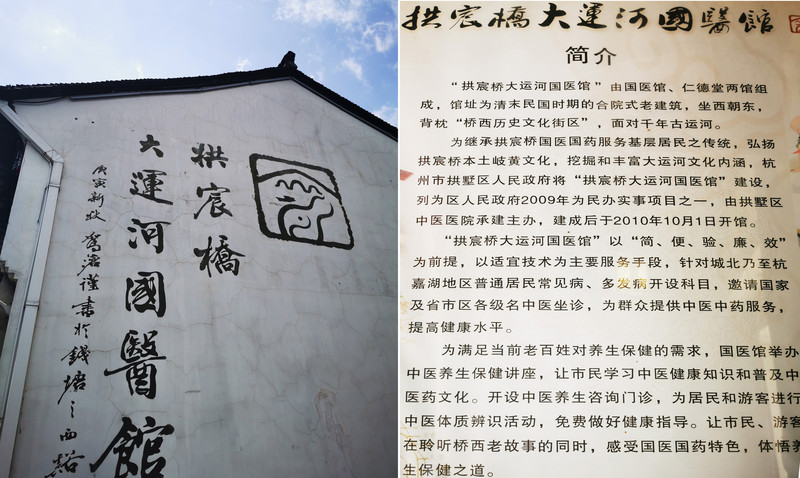 拱宸橋
大運河國醫館
庚寅新秋 謹書於錢塘之西谿
拱宸橋大运河國醫館
简介
“拱宸桥大运河国医馆”由国医馆、仁德堂两馆组
成，馆址为清末民国时期的合院式老建筑，坐西朝东，
背枕“桥西历史文化街区”，面对千年古运河。
为继承拱宸桥国医国药服务基层居民之传统，弘扬
拱宸桥本土岐黄文化，挖掘和丰富大运河文化内涵，杭
州市拱墅区人民政府将“拱宸桥大运河国医馆”建设，
列为区人民政府2009年为民办实事项目之一，由拱墅区
中医医院承建主办，建成后于2010年10月1日开馆。
“拱宸桥大运河国医馆”以“简、便、验、廉、效”
为前提，以适宜技术为主要服务手段，针对城北乃至杭
嘉湖地区普通居民常见病、多发病开设科目，邀请国家
及省市区各级名中医坐诊，为群众提供中医中药服务，
提高健康水平。
为满足当前老百姓对养生保健的需求，国医馆举办
中医养生保健讲座，让市民学习中医健康知识和普及中
医药文化。开设中医养生咨询门诊，为居民和游客进行
中医体质辨识活动，免费做好健康指导。让市民、游客
在聆听桥西老故事的同时，感受国医国药特色，体悟养
生保健之道。